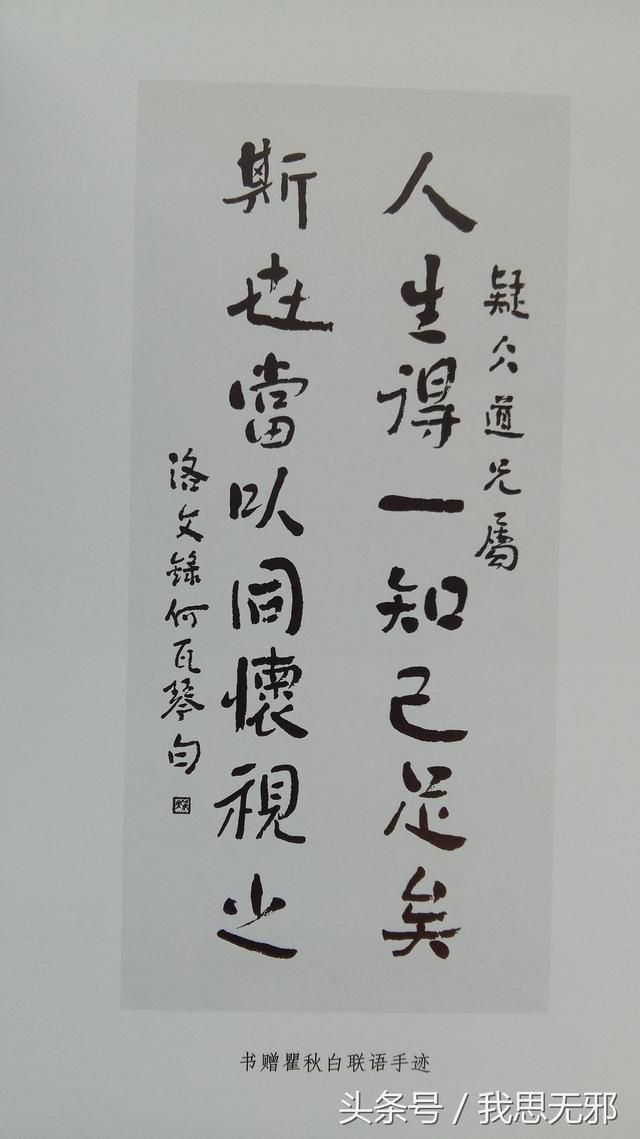 疑仌道兄屬
人生得一知己足矣
斯世當以同懷視之
洛文錄何瓦琴句
书赠瞿秋白联语手迹
头条号 / 我思无邪